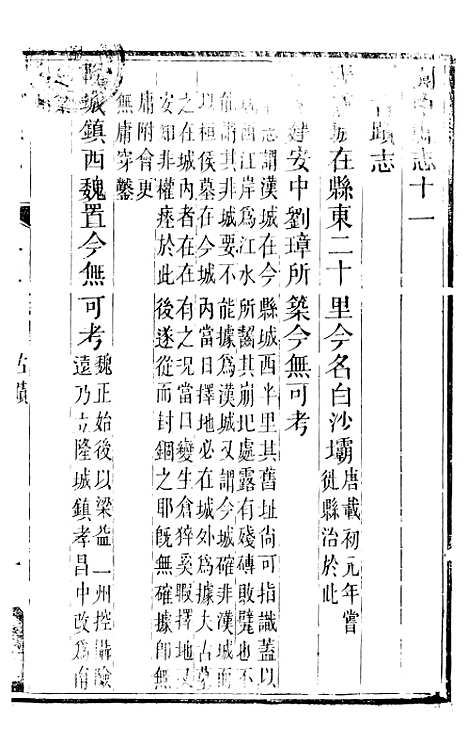 志十一
蹟志
城在縣東二十里今名白沙壩 唐載初元年嘗
徙縣治於此
建安中劉璋所築今無可考
志謂漢城在今縣城西半里其舊址尚可指識蓋以
江岸為江水所齧其崩圯處露有殘磚敗甓也不
能謂其非城要不能據為漢城又謂今城確非漢城
以桓侯墓在今城內當日擇地必在城外為據夫古墓
之在城內者在在有之況當日變生倉猝奚暇擇地又
安知非權瘞於此後遂從而封錮之耶既無確據即無
庸附會更
無庸穿鑿
隆城鎮西魏置今無可考 魏正始後以梁益二州控攝險
遠乃立隆城鎮孝昌中改為南
古蹟